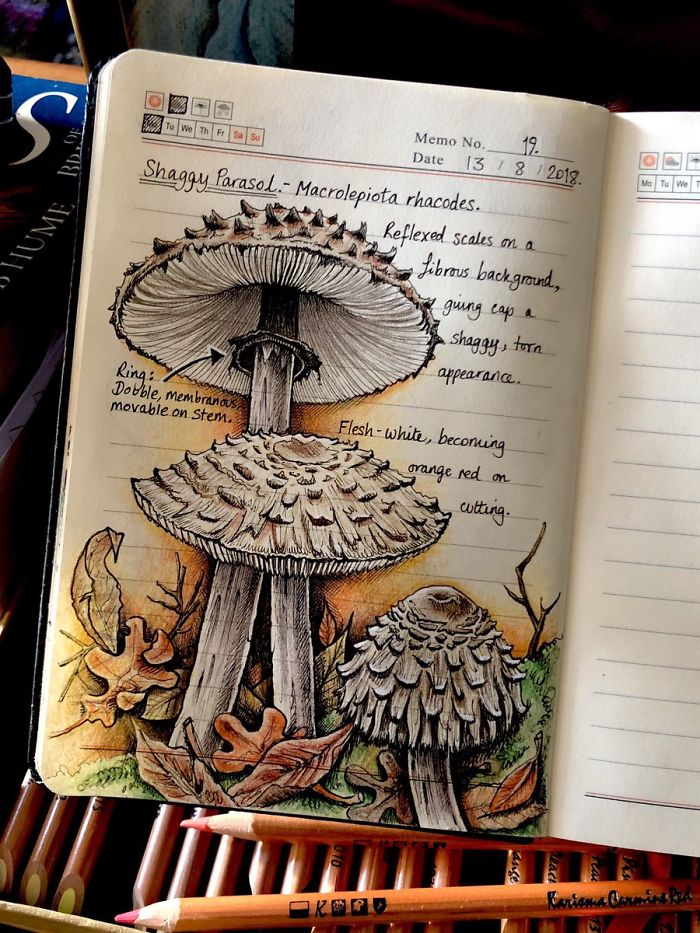 S
HUME
Memo No. 19.
Tu We Th Fr Sa Su
Date 13 / 8 / 2018.
Mo Tu We
Shaggy Parasol.- Macrolepiota rhacodes.
Reflexed scales on a
fibrous background,
giving cap a
shaggy, torn
appearance.
Ring:
Dobble, membranous,
movable on stem.
Flesh-white, becoming
orange red on
cutting.
010
K
Karisma Carmine Red